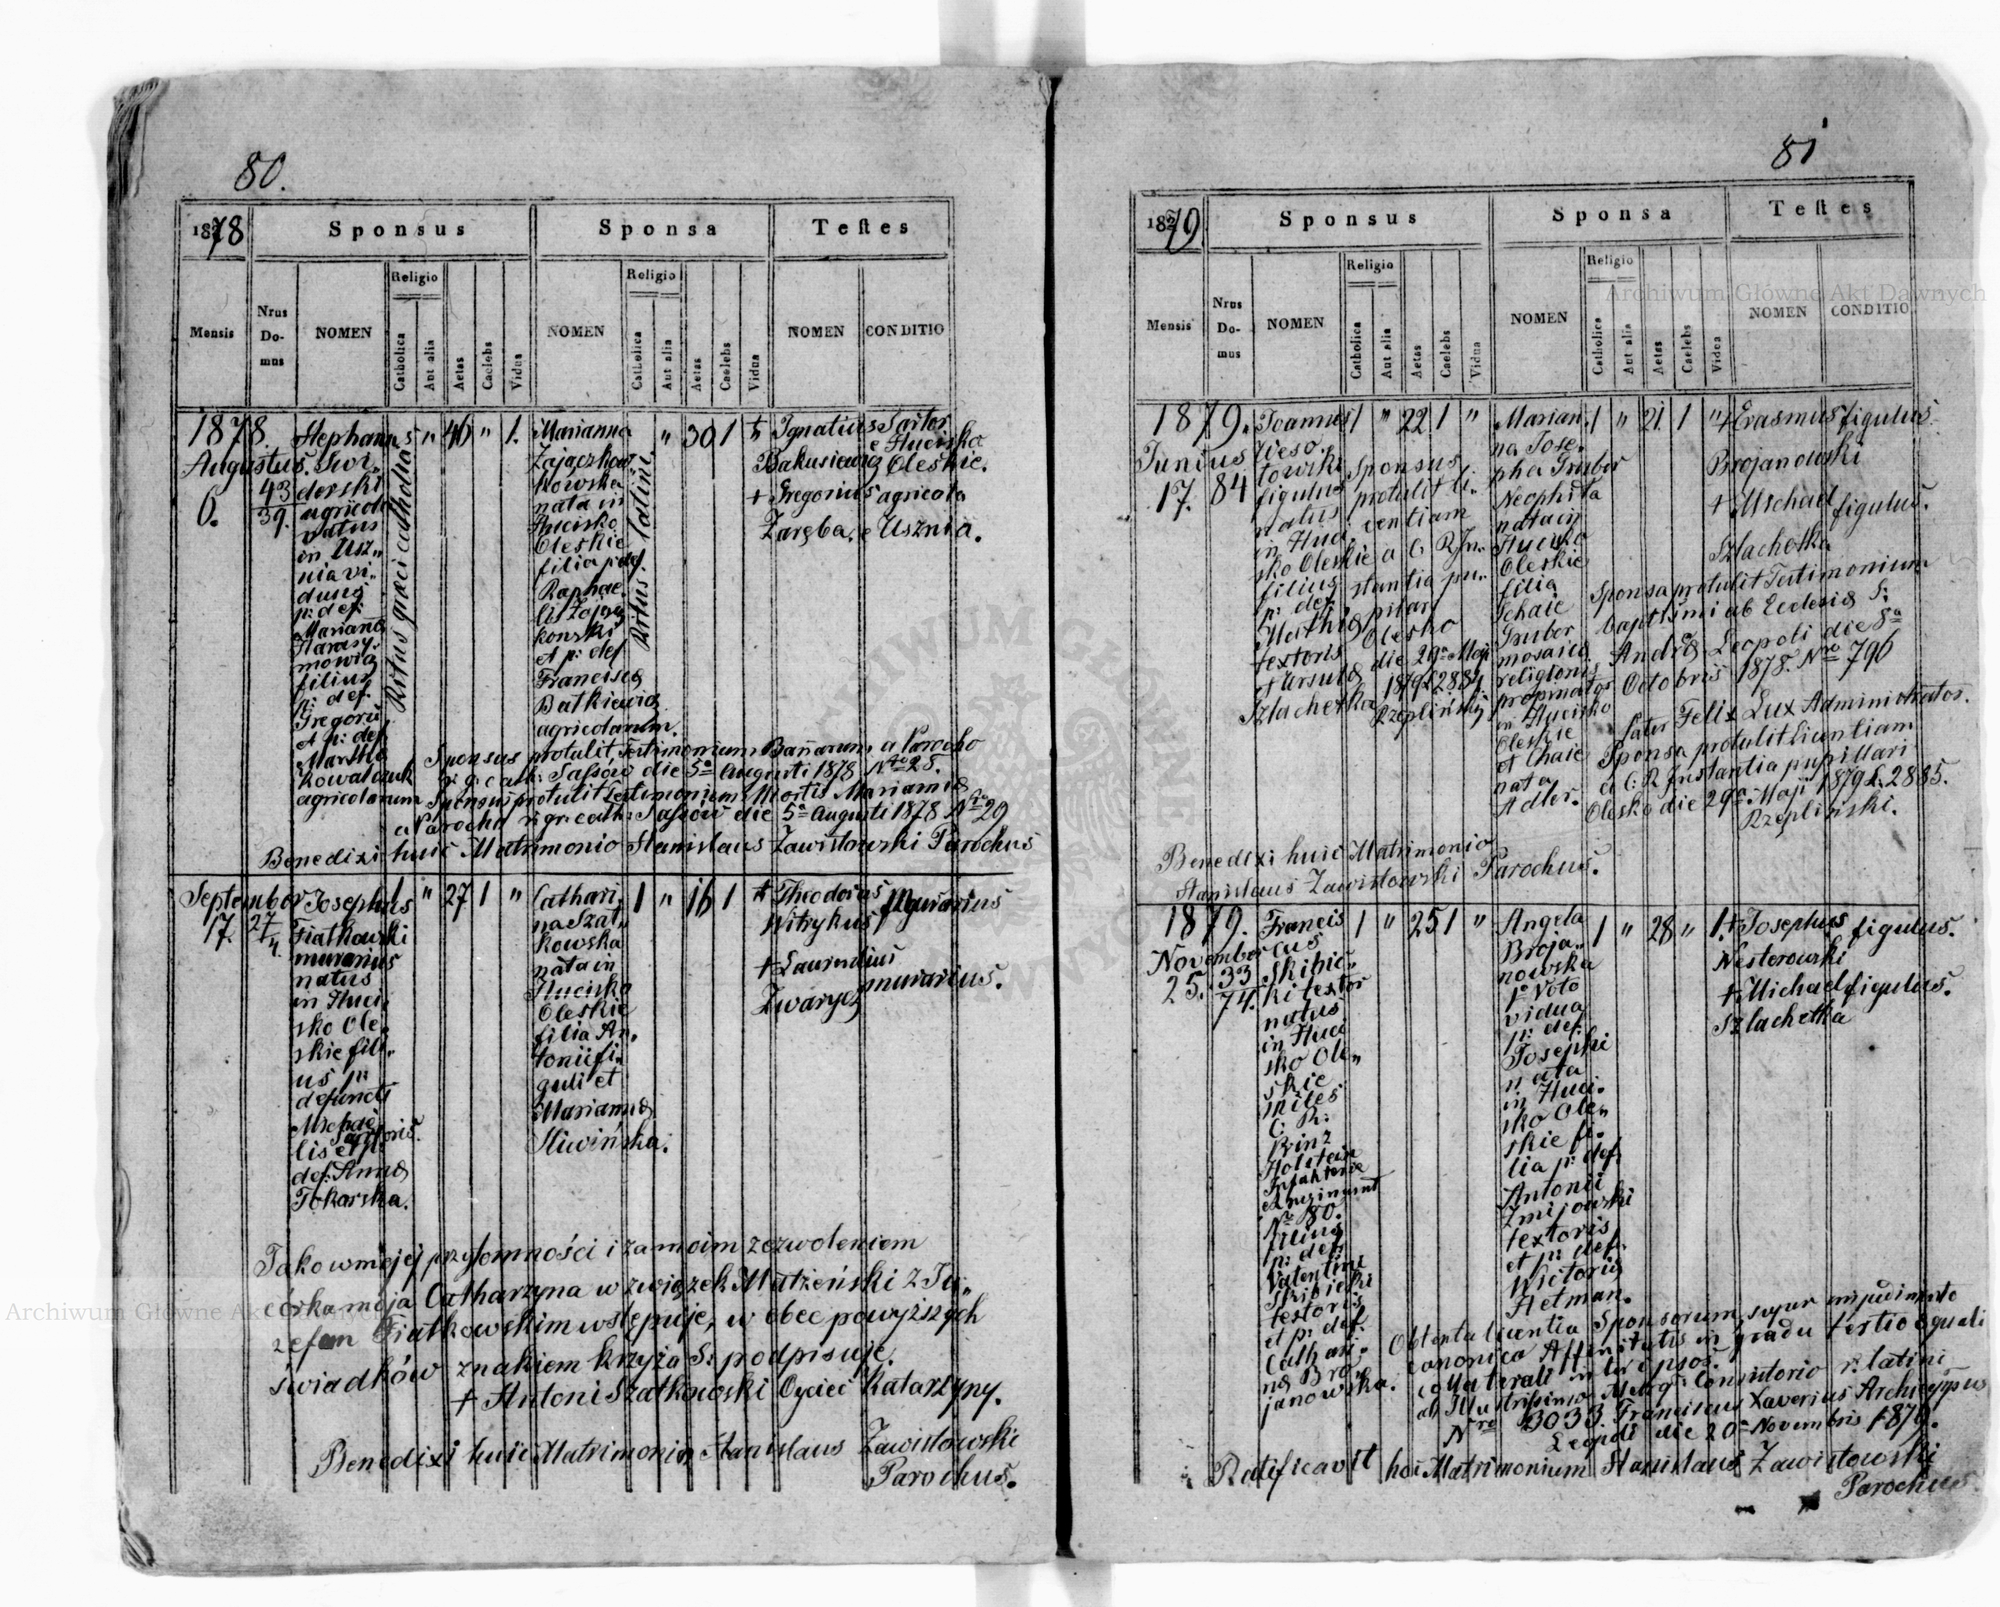 80.
1878
Sponsus
Sponsa
Testes
Mensis
Nrus Domus
NOMEN
Religio
Catholica
Aut alia
Aetas
Caelebs
Vidua
NOMEN
Religio
Catholica
Aut alia
Aetas
Caelebs
Vidua
NOMEN
CONDITIO
1878.
Augustus.
6.
43
39.
Stephanus
agricola
natus
in Usz„
nia vi„
duus
p: def:
Marianna
filius
p: def.
Gregorii
et p: def
Martha
Kowalczuk
agricolarum
Ritus graeci catholica
„ 46 „ 1.
Marianna
Zajączkow
kowska
nata in
Hucisko
Oleskie
filia p: def.
Raphae„
lis Zając
kowski
et p: def
Francisca
Batkiewicz
agricolarum.
Ritus latini.
„ 30 1
Ignatius
Bakusiewicz
Sartor
e Hucisko
Oleskie.
+ Gregorius
Zaręba.
agricola
e Usznia.
Sponsus protulit Testimonium Bannorum a Parocho
r: g: cath: Sassów die 5a Augusti 1878 Nro 28.
Sponsus protulit Testimonium Mortis Marianna
a Parocho r: gr: cath: Sassów die 5a Augusti 1878 Nro 29
Benedixi huic Matrimonio Stanislaus Zawistowski Parochus
September
17.
27
4.
Josephus
Fiałkowski
murarius
natus
in Huci„
sko Ole„
skie fili„
us p:
defuncti
Michae„
lis et p:
def. Anna
Tokarska.
1 „ 27 1 „
Cathari„
na Szat„
kowska
nata in
Hucisko
Oleskie
filia An„
tonii fi„
guli et
Marianna
Śliwińska.
1 „ 16 1
+ Theodorus
Witrykus
murarius
+ Laurentius
Zwarycz
murarius.
Jako w mojej przytomności i za moim zezwoleniem
córka moja Catharzyna w związek Małżeński z Jó„
zefem Fiałkowskim wstępuje, w obec powyższych
świadków znakiem krzyża S: podpisuje.
+ Antoni Szatkowski Ojciec Katarzyny.
Benedixi huic Matrimonio Stanislaus Zawistowski
Parochus.
81
1879
Sponsus
Sponsa
Testes
Mensis
Nrus Domus
NOMEN
Religio
Catholica
Aut alia
Aetas
Caelebs
Vidua
NOMEN
Religio
Catholica
Aut alia
Aetas
Caelebs
Vidua
NOMEN
CONDITIO
1879.
Junius
17.
84
Joannes
Weso„
łowski
figulus
natus
in Huci„
sko Oleskie
filius
p: def:
Mathia
textoris
et Ursula
Szlachetka
1 „ 22 1 „
Sponsus
protulit li„
centiam
a C: R: In„
stantia pu„
pilari
Olesko
die 29a Maji
1879 L. 2884
Rzepliński
Marian„
na Jose„
pha Gruber
Neophita
nata in
Hucisko
Oleskie
filia
Schaie
Gruber
mosaica
religionis
propinator
in Hucisko
Oleskie
et Chaie
nata
Adler.
1 „ 21 1 „
+ Erasmus
Brojanowski
figulus.
+ Michael
Szlachetka
figulus.
Sponsa protulit Testimonium
baptismi ab Ecclesia S:
Andrea Leopoli die 8a
Octobris 1878. Nro 796
Felix Lux Administrator.
Sponsa protulit licentiam
a C: R Instantia pupillari
Olesko die 29a Maji 1879 L. 2885.
Rzepliński.
Benedixi huic Matrimonio
Stanislaus Zawistowski Parochus.
1879.
November
25.
33
74.
Francis
cus
Skibic„
ki textor
natus
in Huci
sko Ole„
skie
miles
C: R:
Prinz
Holstein
Infanterie
Regiment
Nro 80.
filius
p: def.
Valentini
Skibicki
textoris
et p: def.
Cathari„
na Bro„
janowska.
1 „ 25 1 „
Angela
Broja„
nowska
1o voto
vidua
p: def:
Josephi
nata
in Huci„
sko Ole„
skie fi„
lia p: def.
Antonii
Żmijowski
textoris
et p: def.
Wictoria
Hetman.
1 „ 28 „ 1.
+ Josephus
Nesterowski
figulus.
+ Michael
Szlachetka
figulus.
Obtenta licentia Sponsorum super impedimento
canonica Affinitatis in gradu tertio aequali
collaterali inter ipsos.
ab Illustrissimo Metrop: Consistorio r: latini
Nro 3033. Franciscus Xaverius Archieppus
Leopoli die 20a Novembris 1879.
Ratificavit hoc Matrimonium Stanislaus Zawistowski
Parochus.
Archiwum Główne Akt Dawnych
Archiwum Główne Akt Dawnych